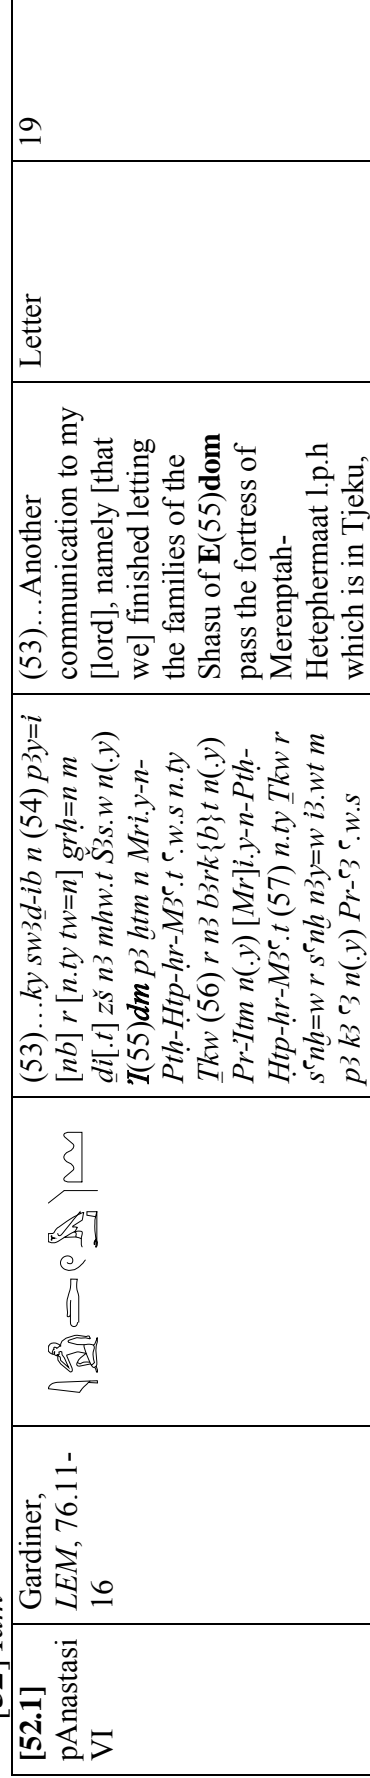 [52.1]
pAnastasi
VI
Gardiner,
LEM, 76.11-
16
(53)…ky swꜣḏ-ib n (54) pꜣy=i
[nb] r [n.ty tw=n] grḥ=n m
ḏi[.t] zš nꜣ mhw.t Šꜣs.w n(.y)
ʾI(55)dm pꜣ ḫtm n Mri.y-n-
Ptḥ-Ḥtp-ḥr-Mꜣꜥ.t ꜥ.w.s n.ty
Ṯkw (56) r nꜣ bꜣrk{b}t n(.y)
Pr-ʾItm n(.y) [Mr]i.y-n-Ptḥ-
Ḥtp-ḥr-Mꜣꜥ.t (57) n.ty Ṯkw r
sꜥnḫ=w r sꜥnḫ nꜣy=w iꜣ.wt m
pꜣ kꜣ ꜥꜣ n(.y) Pr-ꜥꜣ ꜥ.w.s
(53)…Another
communication to my
[lord], namely [that
we] finished letting
the families of the
Shasu of E(55)dom
pass the fortress of
Merenptah-
Hetephermaat l.p.h
which is in Tjeku,
Letter
19